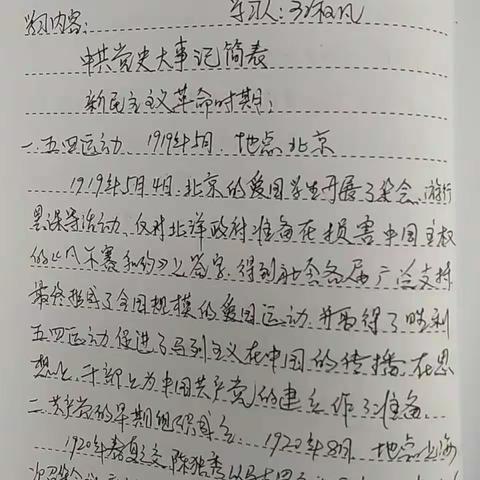 学习内容： 学习人：
中共党史大事记简表
新民主主义革命时期：
一、五四运动 1919年5月 地点 北京
1919年5月4日，北京的爱国学生开展了集会、游行
罢课等活动，反对北洋政府准备在损害中国主权
的《凡尔赛和约》上签字，得到社会各届广泛支持
最终形成了全国规模的爱国运动，并取得了胜利
五四运动促进了马列主义在中国的传播，在思
想上，干部上为中国共产党的建立作了准备。
二、共产党的早期组织成立 1920年8月 地点 上海
1920年春夏之交，陈独秀